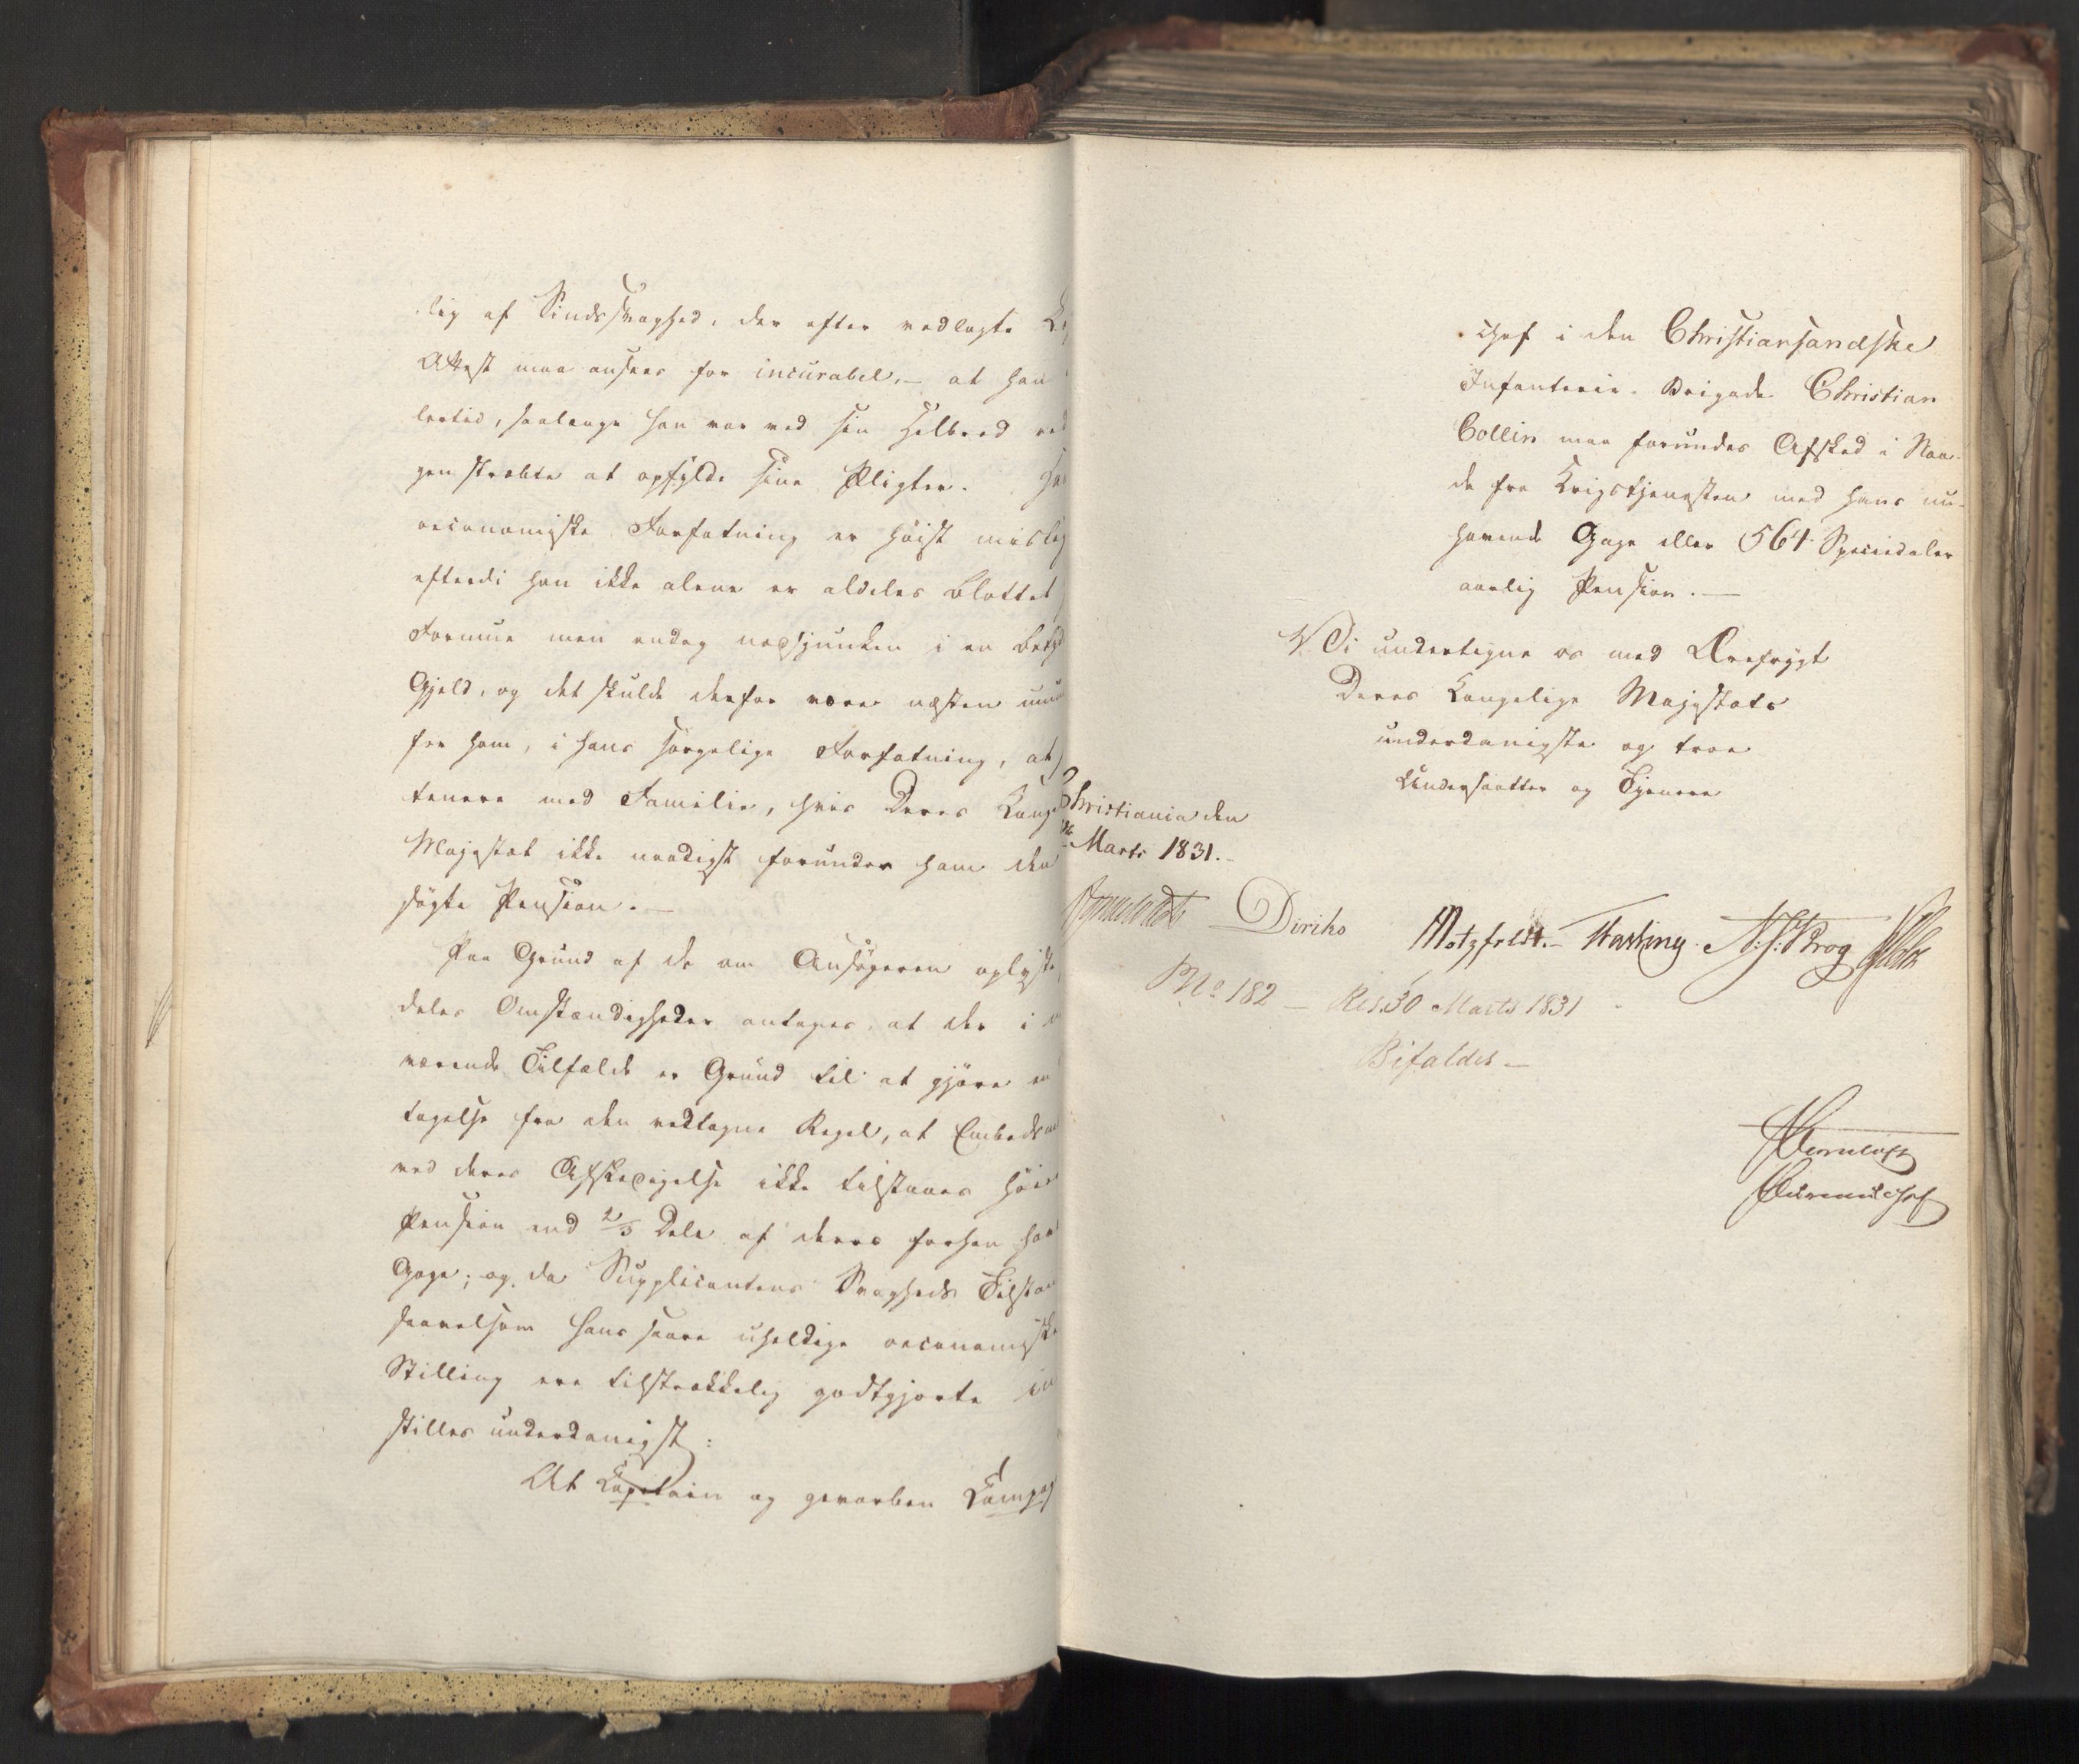 lig af Sindssvaghed, der efter vedlagte
Attest maa ansees for incurabel, – at han
lertid, saalænge han var ved sin Helbred
genstræbte at opfylde sine Pligter.
oeconomiske Forfatning er høist mislig
efterdi han ikke alene er aldeles blottet
Formue men endog nedsjunken i en
Gjeld, og det skulde derfor være næsten
for ham, i hans sørgelige Forfatning, at
tenere med Familie, hvis Deres
Majestæt ikke naadigst forunder ham den
søgte Pension. –
Paa Grund af de om Ansøgeren oplyste
deles Omstændigheder antages, at der i
værende Tilfælde er Grund til at gjøre en
tagelse fra den vedtagne Regel, at
ved deres Afskedigelse ikke tilstaaes
Pension end 2/3 Dele af deres forhen
Gage; og da Supplicantens Svagheds
saavelsom hans saare uheldige oeconomiske
Stilling ere tilstrækkelig godtgjorte in
stilles underdanigst:
At Capitain og gevorben
chef i den Christiansandske
Infanterie-Brigade Christian
Collin maa forundes Afsked i Naa-
de fra Krigstjenesten med hans nu-
havende Gage eller 564 Speciedaler
aarlig Pension. –
Vi undertegne os med Ærefrygt
Deres Kongelige Majestæts
underdanigste og troe
Undersaatter og Tjenere
Christiania den
Marts 1831. –
Diriks Motzfeldt. – N: J: Krog
No 182 – Res. 30 Marts 1831
Bifaldes –